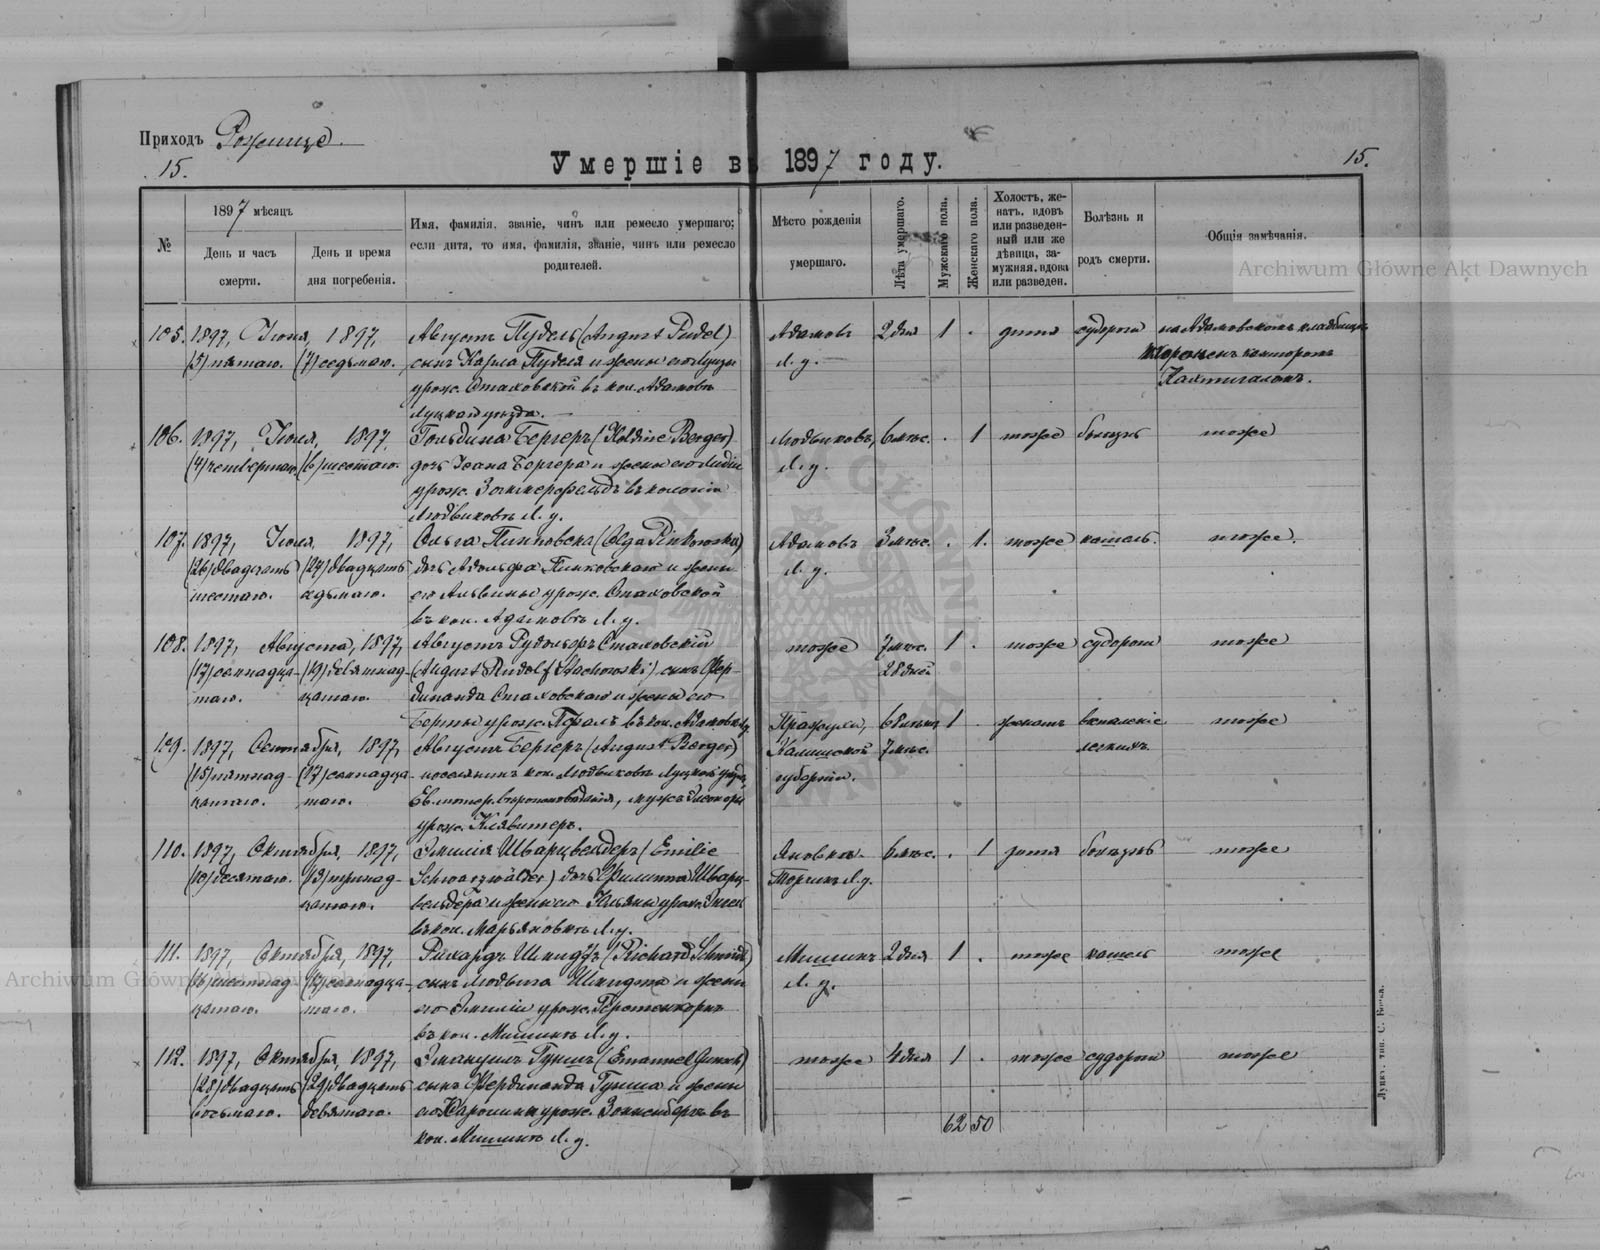 Приходъ Рожище.
15.
Умершіе въ 1897 году.
15.
№
1897 мѣсяцъ
День и часъ смерти.
День и время дня погребенія.
Имя, фамилія, званіе, чинъ или ремесло умершаго;
если дитя, то имя, фамилія, званіе, чинъ или ремесло
родителей.
Мѣсто рожденія
умершаго.
Лѣта умершаго.
Мужскаго пола.
Женскаго пола.
Холостъ, же-
натъ, вдовъ
или разведен-
ный или же
дѣвица, за-
мужняя, вдова
или разведен.
Болѣзнь и
родъ смерти.
Общія замѣчанія.
Archiwum Główne Akt Dawnych
105. 1897, Іюня, 1897, Августъ Пудель (August Pudel) Адамовъ 2 дня 1 . дитя судороги на Адамовскомъ кладбищѣ
(5) пятаго. (7) седьмаго. сынъ Карла Пуделя и жены его Луизы Л. у. канторомъ
урож. Стаховской въ кол. Адамовъ
Луцкаго уѣзда.
106. 1897, Іюля, 1897, Гольдина Бергеръ (Holdine Berger) Людвиковъ, 6 мѣс. . 1 тоже болѣзнь тоже
(4) четвертаго. (6) шестаго. дочь Іоана Бергера и жены его Лидіи Л. у.
урож. Зоммерфельдъ въ колоніи
Людвиковъ Л. у.
107. 1897, Іюля, 1897, Ольга Пинковска (Olga Pinkowska) Адамовъ 3 мѣс. . 1. тоже кашель. тоже.
(26) двадцать (27) двадцать дочь Адольфа Пинковскаго и жены Л. у.
шестаго. седьмаго. его Альвины урож. Стаховской
въ кол. Адамовъ Л. у.
108. 1897, Августа, 1897, Августъ Рудольфъ Стаховскій тоже 7 мѣс. 1 . тоже судороги тоже
(17) семнадца- (19) девятнад- (August Rudolf Stachowski) сынъ Фер- 28 дней
таго. цатаго. динанда Стаховскаго и жены его
Берты урож. въ кол. Адамовъ Л. у.
109. 1897, Сентября, 1897, Августъ Бергеръ (August Berger) 1 . женатъ воспаленіе тоже
(15) пятнад- (17) семнадца- поселянинъ кол. Людвиковъ Луцкаго уѣзда, Калишской 7 мѣс. легкихъ
цатаго. таго. Ев. лютер. вѣроисповѣданія, мужъ губерніи.
урож. Клявитеръ.
110. 1897, Октября, 1897, Эмилія Шварцвельдеръ (Emilie 6 мѣс. . 1 дитя болѣзнь тоже
(10) десятаго. (13) тринад- Schwarzwälder) дочь Филиппа Шварц- Торчинъ Л. у.
цатаго. вельдера и жены его Юльяны урож.
въ кол. Марьяновкѣ Л. у.
111. 1897, Октября, 1897, Рихардъ Шмидтъ (Richard Schmidt) Мишинъ 2 дня 1 . тоже кашель тоже
Archiwum Główne Akt Dawnych
(16) шестнад- (17) семнадца- сынъ Людвига Шмидта и жены Л. у.
цатаго. таго. его Эмиліи урож.
въ кол. Мишинъ Л. у.
112. 1897, Октября, 1897, Эмануилъ Гуншъ (Emanuel Gunsch) тоже 4 дня 1 . тоже судороги тоже
(28) двадцать (29) двадцать сынъ Фердинанда Гунша и жены
восьмаго. девятаго. его Каролины урож. Зонненбергъ въ
кол. Мишинъ Л. у.
62 50
Луцкъ. тип. С. Бокъа.